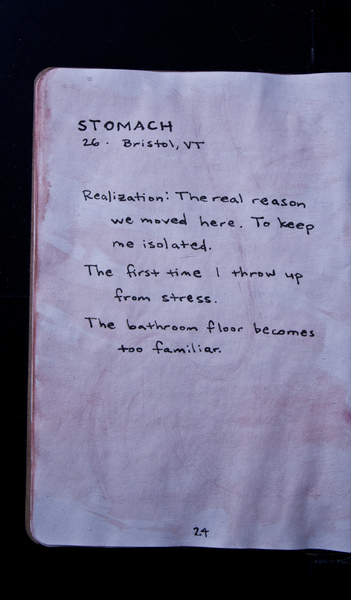 STOMACH
26. Bristol, VT
Realization: The real reason
we moved here. To keep
me isolated.
The first time I throw up
from stress.
The bathroom floor becomes
too familiar.
24